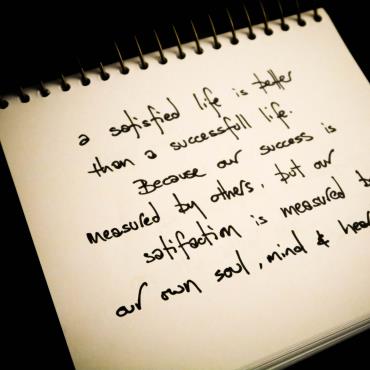 a satisfied life is better
than a successfull life.
Because our success is
measured by others, but our
satifaction is measured b
our own soul, mind & hear